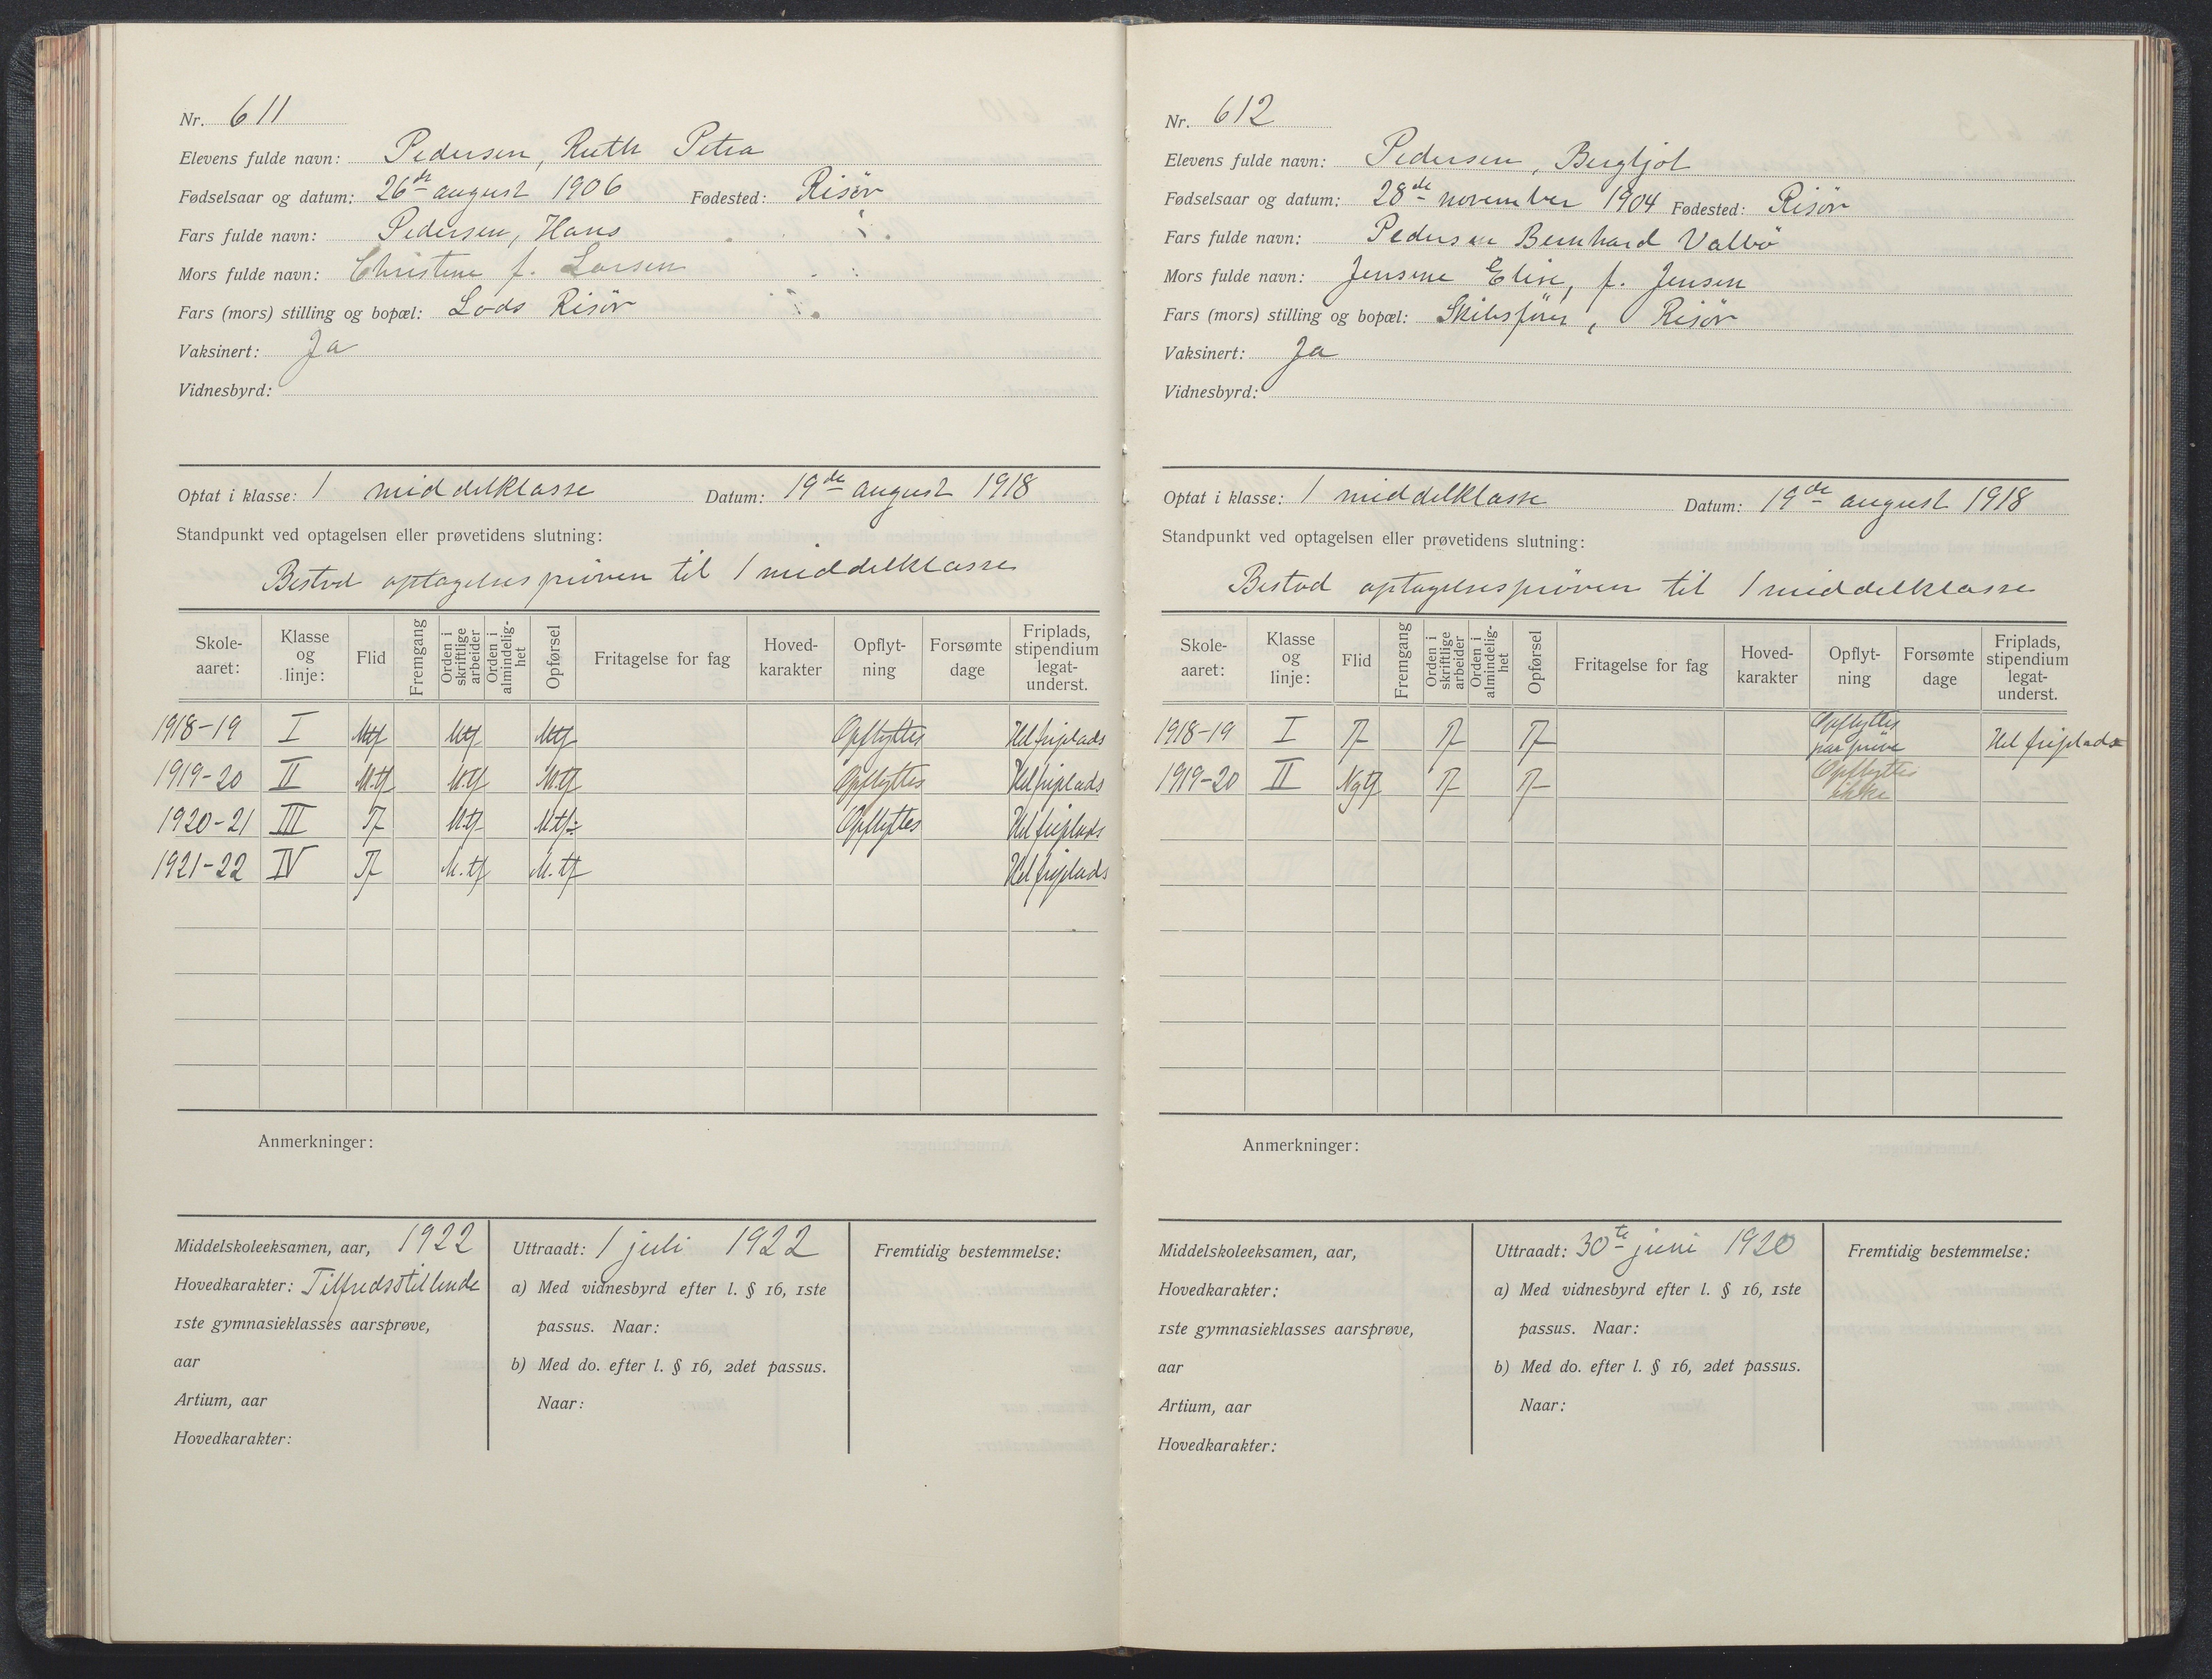 Nr. 611
Elevens fulde navn: Pedersen, Ruth Petra
Fødselsaar og datum: 26de august 1906 Fødested: Risör
Fars fulde navn: Pedersen, Hans
Mors fulde navn: Christine f. Larsen
Fars (mors) stilling og bopæl: Lods Risör
Vaksinert: Ja
Vidnesbyrd:
Optat i klasse: 1 middelklasse Datum: 19de august 1918
Standpunkt ved optagelsen eller prøvetidens slutning:
Bestod optagelsespröven til 1 middelklasse
Skole-aaret: Klasse og linje: Flid Fremgang Orden i skriftlige arbeider Orden i almindelig-het Opførsel Fritagelse for fag Hoved-karakter Opflyt-ning Forsømte dage Friplads, stipendium legat-underst.
1918-19 I Mtf Mtf Mtf Opflyttes Hel friplads
1919-20 II M.tf M.tf M.tf Opflyttes Hel friplads
1920-21 III Tf M.tf M.tf÷ Opflyttes Hel friplads
1921-22 IV Tf M.tf M.tf Hel friplads
Anmerkninger:
Middelskoleeksamen, aar, 1922
Hovedkarakter: Tilfredsstillende
1ste gymnasieklasses aarsprøve,
aar
Artium, aar
Hovedkarakter:
Uttraadt: 1 juli 1922
a) Med vidnesbyrd efter l. § 16, 1ste
passus. Naar:
b) Med do. efter l. § 16, 2det passus.
Naar:
Fremtidig bestemmelse:
Nr. 612
Elevens fulde navn: Pedersen, Bergljot
Fødselsaar og datum: 28de november 1904 Fødested: Risör
Fars fulde navn: Pedersen Bernhard Valbö
Mors fulde navn: Jensine Elise, f. Jensen
Fars (mors) stilling og bopæl: Skibsförer, Risör
Vaksinert: Ja
Vidnesbyrd:
Optat i klasse: 1 middelklasse Datum: 19de august 1918
Standpunkt ved optagelsen eller prøvetidens slutning:
Bestod optagelsespröven til 1 middelklasse
Skole-aaret: Klasse og linje: Flid Fremgang Orden i skriftlige arbeider Orden i almindelig-het Opførsel Fritagelse for fag Hoved-karakter Opflyt-ning Forsømte dage Friplads, stipendium legat-underst.
1918-19 I Tf Tf Tf Opflyttes paa pröve Hel friplads
1919-20 II Ngtf Tf Tf Opflyttes ikke
Anmerkninger:
Middelskoleeksamen, aar,
Hovedkarakter:
1ste gymnasieklasses aarsprøve,
aar
Artium, aar
Hovedkarakter:
Uttraadt: 30te juni 1920
a) Med vidnesbyrd efter l. § 16, 1ste
passus. Naar:
b) Med do. efter l. § 16, 2det passus.
Naar:
Fremtidig bestemmelse: